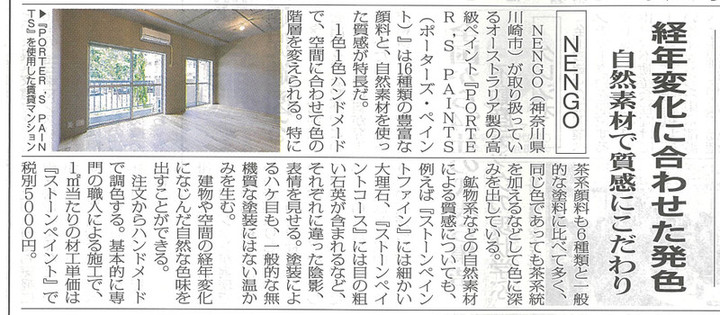 経年変化に合わせた発色
自然素材で質感にこだわり
NENGO
NENGO（神奈川県
川崎市）が取り扱ってい
るオーストラリア製の高
級ペイント『PORTE
R,S PAINTS
（ポーターズ・ペイン
ト）』は16種類の豊富な
顔料と、自然素材を使っ
た質感が特長だ。
1色1色ハンドメード
で、空間に合わせて色の
階層を変えられる。特に
▶『PORTER,S PAIN
TS』を使用した賃貸マンション
茶系顔料も6種類と一般
的な塗料に比べて多く、
同じ色であっても茶系統
を加えるなどして色に深
みを出している。
鉱物系などの自然素材
による質感についても、
例えば『ストーンペイン
トファイン』には細かい
大理石、『ストーンペイ
ントコース』には目の粗
い石英が含まれるなど、
それぞれに違った陰影、
表情を見せる。塗装によ
るハケ目も、一般的な無
機質な塗装にはない温か
みを生む。
建物や空間の経年変化
になじんだ自然な色味を
出すことができる。
注文からハンドメード
で調色する。基本的に専
門の職人による施工で、
1㎡当たりの材工単価は
『ストーンペイント』で
税別5000円。